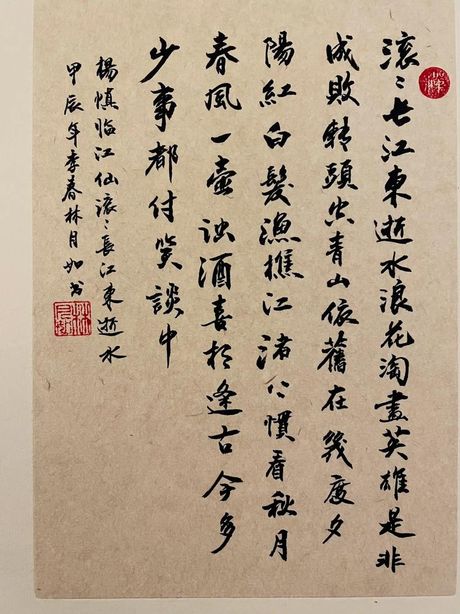 滚〻长江東逝水浪花淘盡英雄是非
成敗轉頭空青山依舊在幾度夕
陽紅白髮漁樵江渚上慣看秋月
春風一壺浊酒喜相逢古今多
少事都付笑談中
楊慎临江仙滚〻長江東逝水
甲辰年季春林月如书